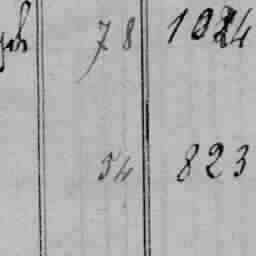 78 1024
54 823